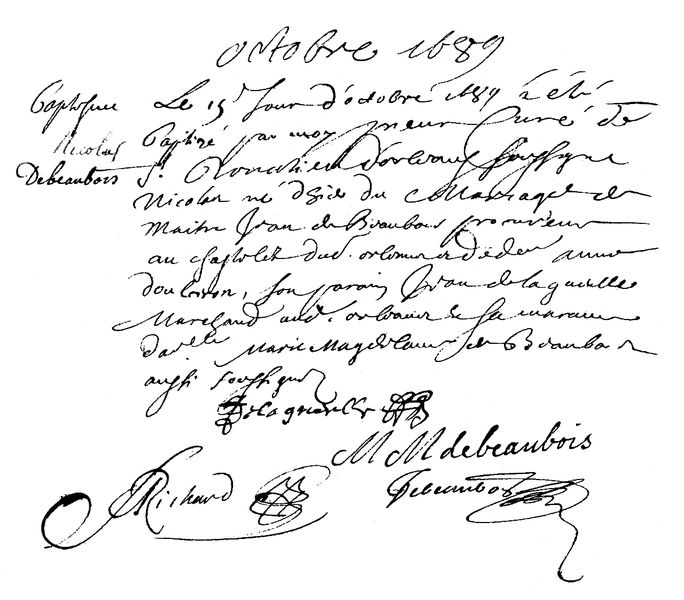 octobre 1689
Baptesme
Nicolas
Debeaubois
Le 15e Jour d'octobre 1689 a été
Baptizé par moy prieur Curé de
St. Donatien d'orleans soussigné
Nicolas né d'hier du Mariage de
Maitre Jean de Beaubois procureur
au chastelet dud. orleans et de de anne
doulceron, son parain Jean de la gueulle
Marchand aud. orleans & sa maraine
d'avelle Marie Magdelaine de Beaubois
aussi soussignez
Delagueulle
M M debeaubois
Richard
Debeaubois